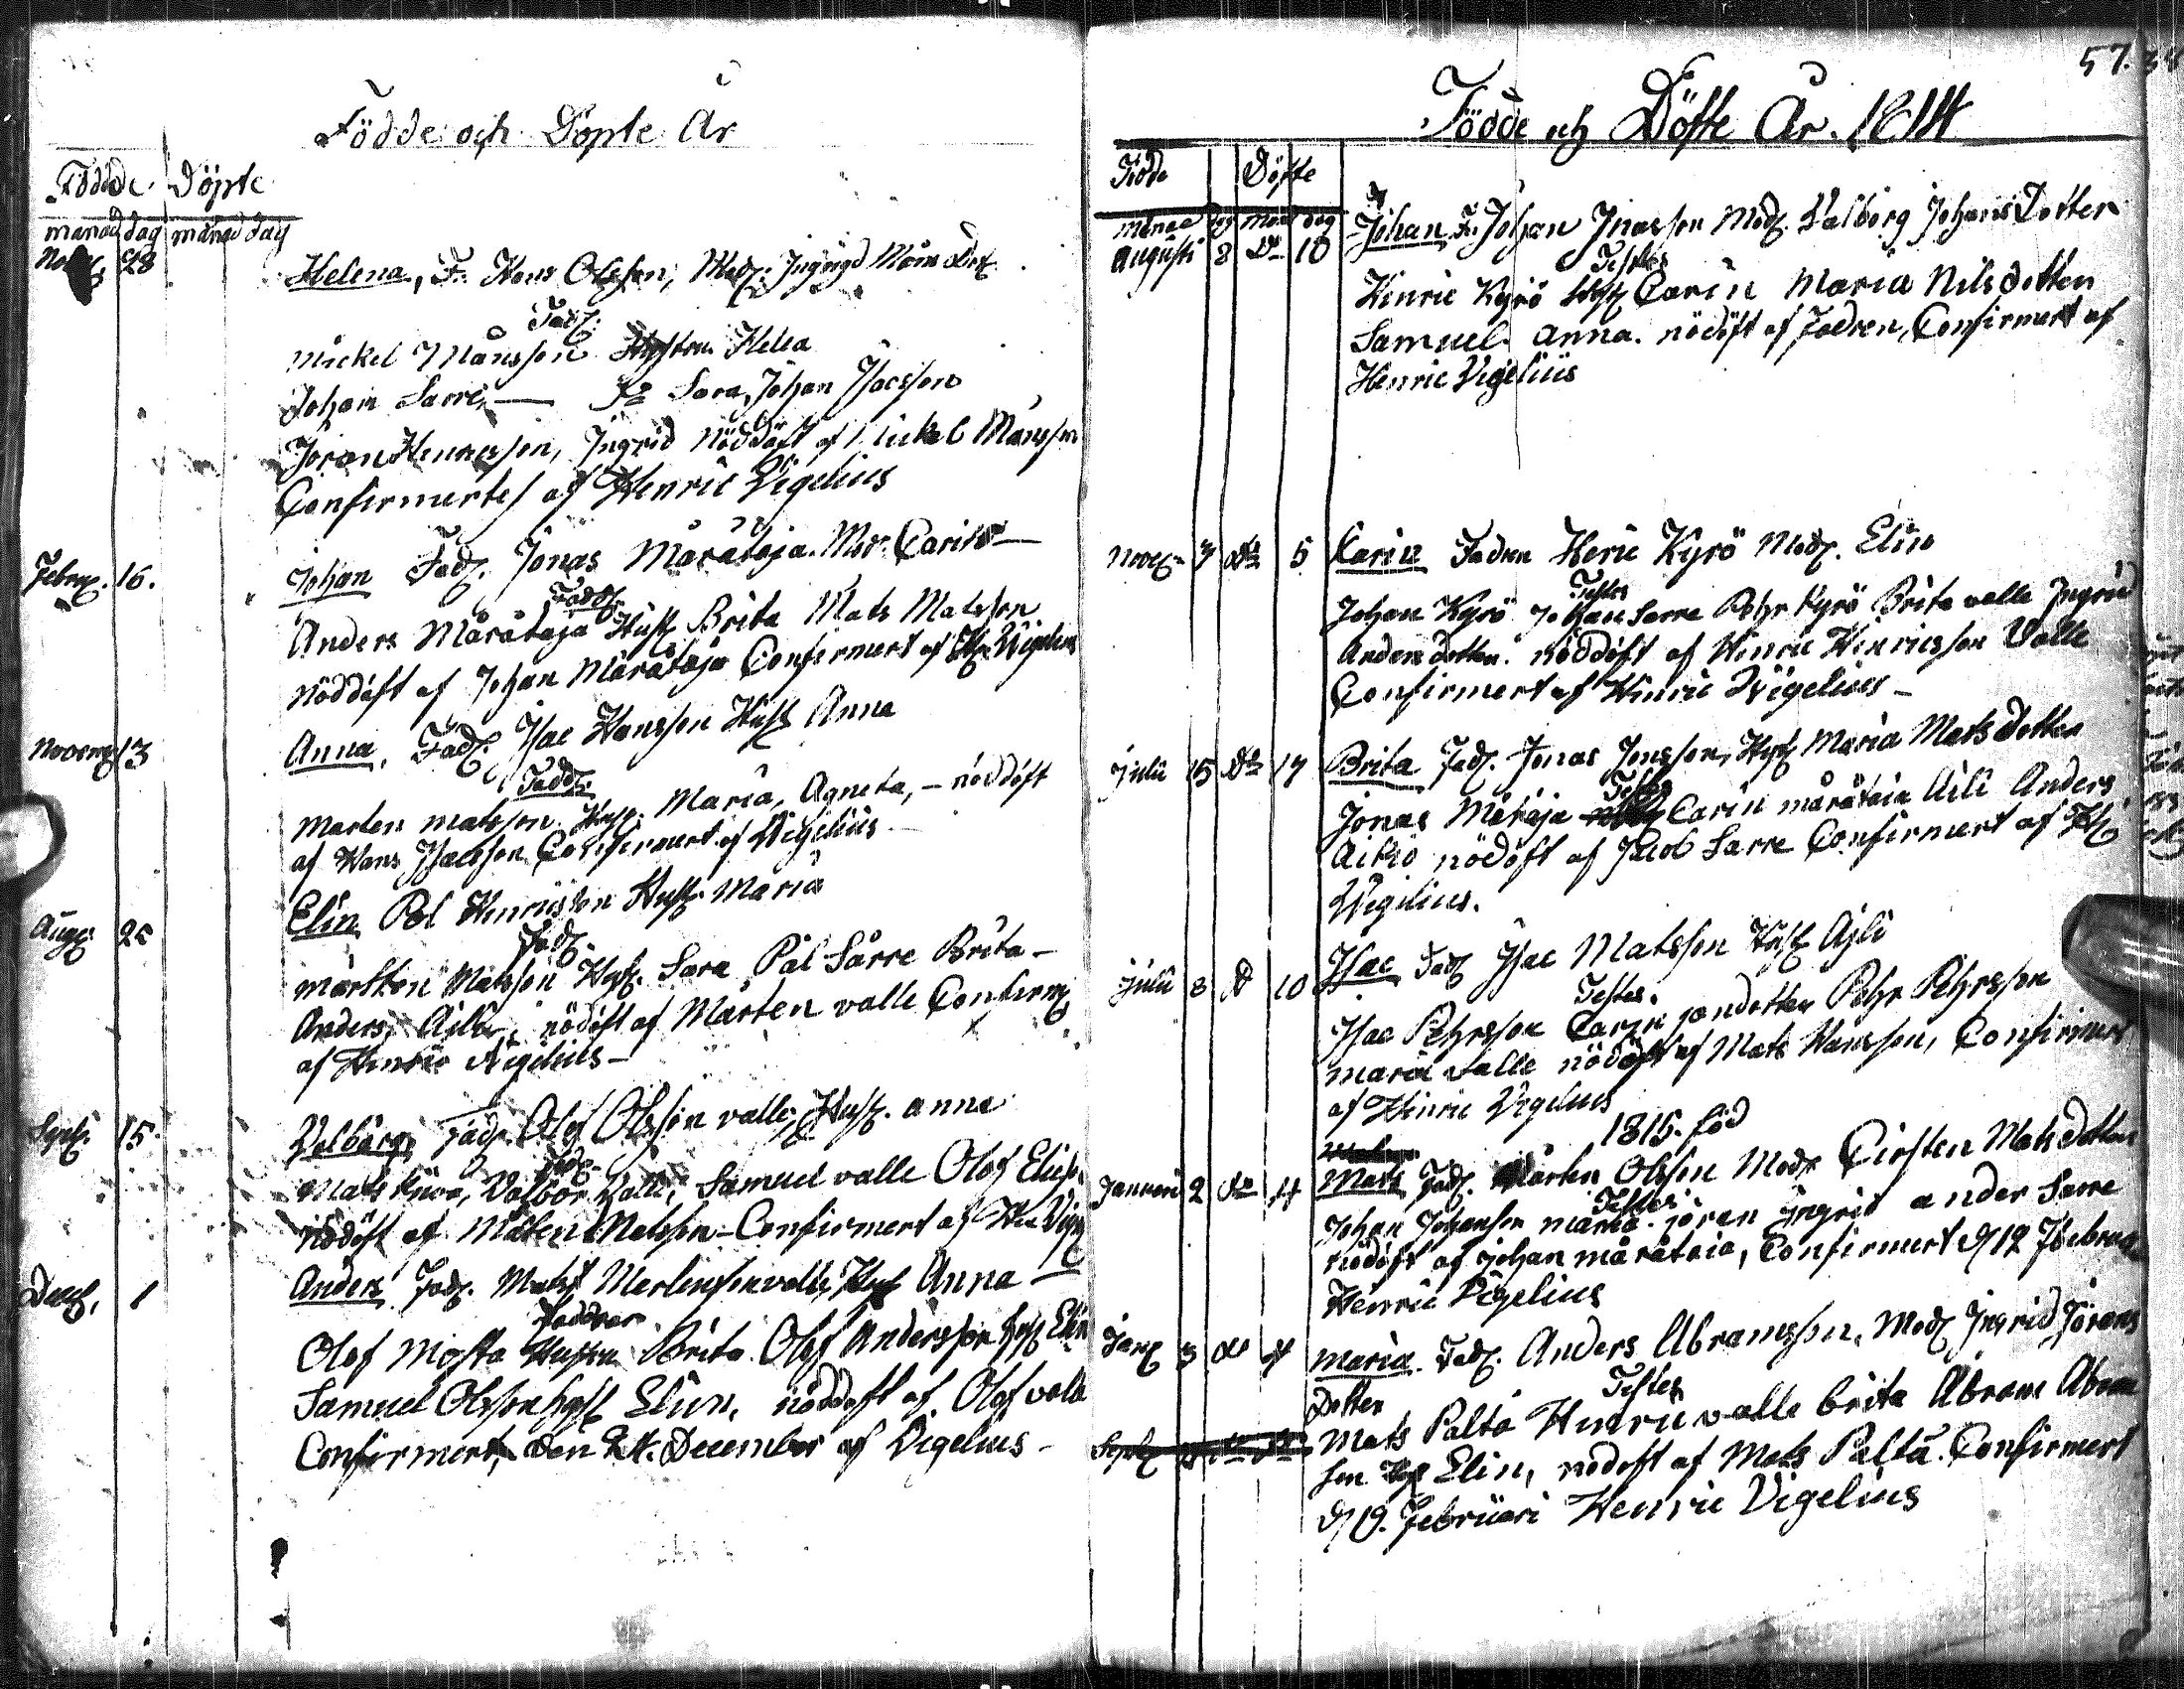 Födde och Döpte År
Födde Döpte
månad dag månad dag
28 Helena, F. Hans Olsson, Mod:
Fad:
Mickel Månsson Hustru Helea
Johan Sarre, — Sara, Johan Isacsson
Joran Henricsson, Ingrid nöddöft af Mickel Månsson
Confirmertes af Henric Vigelius
Febru. 16. Johan Fad. Jonas Måråtaja. Mod. Carin —
Fadd.
Anders Måråtaja Hust Brita Mats Matsson
nöddöft af Johan Måråtaja Confirmert af Vigelius
13 Anna, Fad. Isac Hansson Hust Anna
Fadd.
Marten matsson Hust. Maria, Agneta, – nöddöft
af Hans Isacsson Confirmert af Vigelius
Aug. Elin Pol Henricsson Hust. Maria
Fad.
Mårten Matsson Hust. Sara Pål Sarre Brita –
Anders, Aile, nödöft af Mårten valle Confirm
af Henric Vigelius –
Sept. 15. Valborg, Fad. Olof Olsson valle, Hust. anna
Fad.
Mats Kuva, Valbor Valle, Samuel valle Olof
nödöft af Måten Matsson – Confirmert af Hen Vige
Dec. 1 Anders Fad. Mats valle, Hust Anna —
Faddrar
Olof Mosta Hustru Brita. Olof Andersson Hust Elin
Samuel Olsson Hust Elin, nöddöft af Olof valle
Confirmert, den 24. December af Vigelius –
57.
Födde och Döfte År. 1814
Föde Döpte
månad dag mån dag
Augusti 8 Do 10 Johan F. Johan Jnasson Mod. Valborg Johans Dotter
Testes
Hinric Kyrö Hust Carin Maria Nilsdotter
Samuel. Anna. nödöft af Fadren, Confirmert af
Henric Vigelius
Novem 3 Do 5 Karin Fadren Heric Kyrö Mod. Elin
Testes
Johan Kyrö Johan Sarre Pehr Kyrö Brita valle Ingrid
Anders dotter. nöddöft af Hinric Hinricsson Valle
Confirmert af Hinric Vigelius –
Julii 15 Do 17 Brita Fad. Jonas Jonsson, Hust Maria Mats dotter
Testes
Jonas Carin måråtaia Aili Anders
Aikio nödöft af Jacob Sarre Confirmert af H
Vigilius.
Julii 8 D 10 Isac Fad. Isac Matsson Hust Ajli
Testes.
Isac Pehrsson Carin jondotter Pehr Pehrsson
maria valle nödöft af Mats Hansson, Confirmert
af Hinric Vigelius
1815. föd
Januari 2 Do 4 Mats Fad. Mårten Olsson Mod. Cirsten Matsdotter
Testes
Johan Johansson maria. jöran Ingrid ander Sarre
nödöft af johan måråtaia, Confirmert d 12 Februari
Henric Vigelius
Jan 3 Do 4 maria. Fad. Anders Abramsson, Mod. Ingrid Jörans
Dotter Testes
Mats Palta Hinric valle brita Abram Abram
son Hust Elin, nodoft af Mats Palta. Confirmert
Februari Henric Vigelius